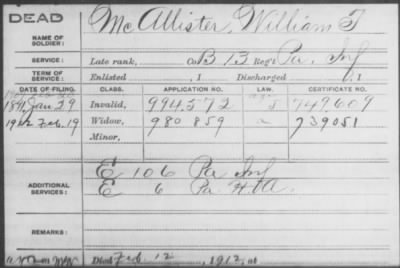 DEAD
NAME OF SOLDIER: McAllister, William T
SERVICE: Late rank, Co B 13 Reg't Pa. Inf
TERM OF SERVICE: Enlisted , 1 Discharged , 1
DATE OF FILING. CLASS. APPLICATION NO. LAW. CERTIFICATE NO.
1891 Jan 29 Invalid, 994,572 749,609
1912 Feb. 19 Widow, 980 859 739051
Minor,
ADDITIONAL SERVICES: E 106 Pa Inf
E 6 Pa H. A.
REMARKS:
Died Feb. 12, 1912, at